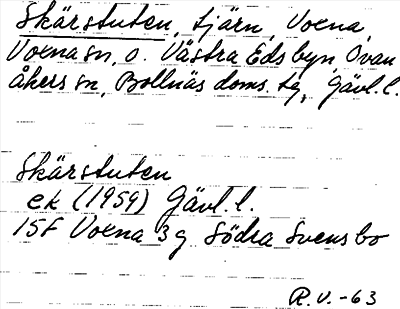 Skärstuten, tjärn, Voxna,
Voxna sn, o. Västra Edsbyn, Ovan
åkers sn, Bollnäs doms. tg, Gävl. l.
Skärstuten
ek (1959) Gävl. l.
15F Voxna 3g Södra Svensbo
R.V.-63